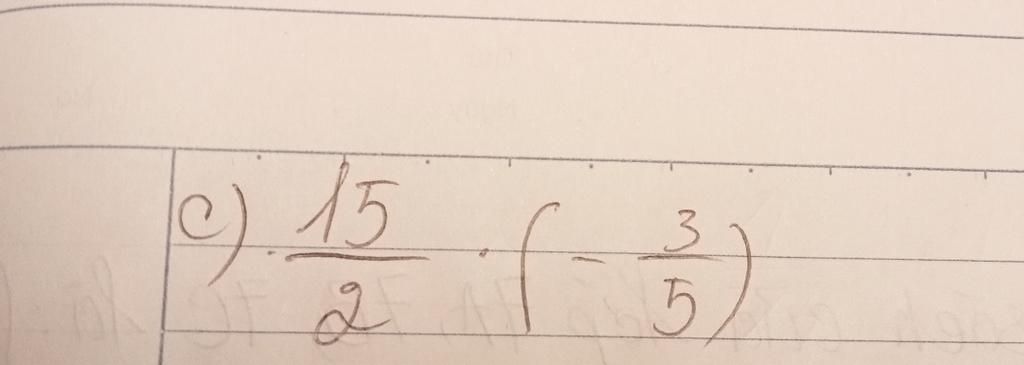 c) 15/2 · (- 3/5)